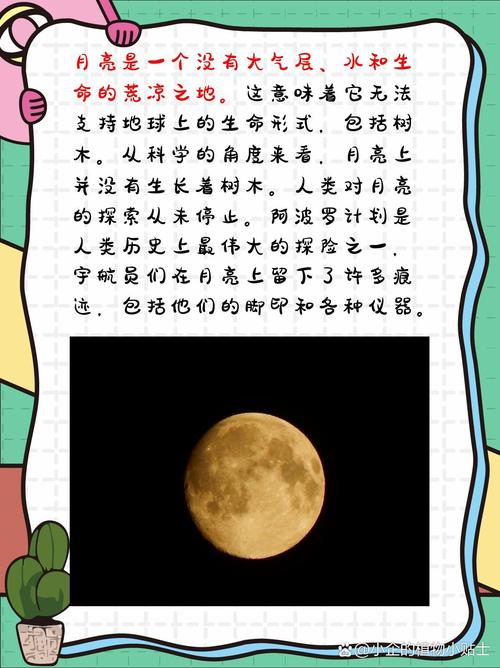 月亮是一个没有大气层、水和生
命的荒凉之地。这意味着它无法
支持地球上的生命形式，包括树
木。从科学的角度来看，月亮上
并没有生长着树木。人类对月亮
的探索从未停止。阿波罗计划是
人类历史上最伟大的探险之一，
宇航员们在月亮上留下了许多痕
迹，包括他们的脚印和各种仪器。
@小企的植物小贴士